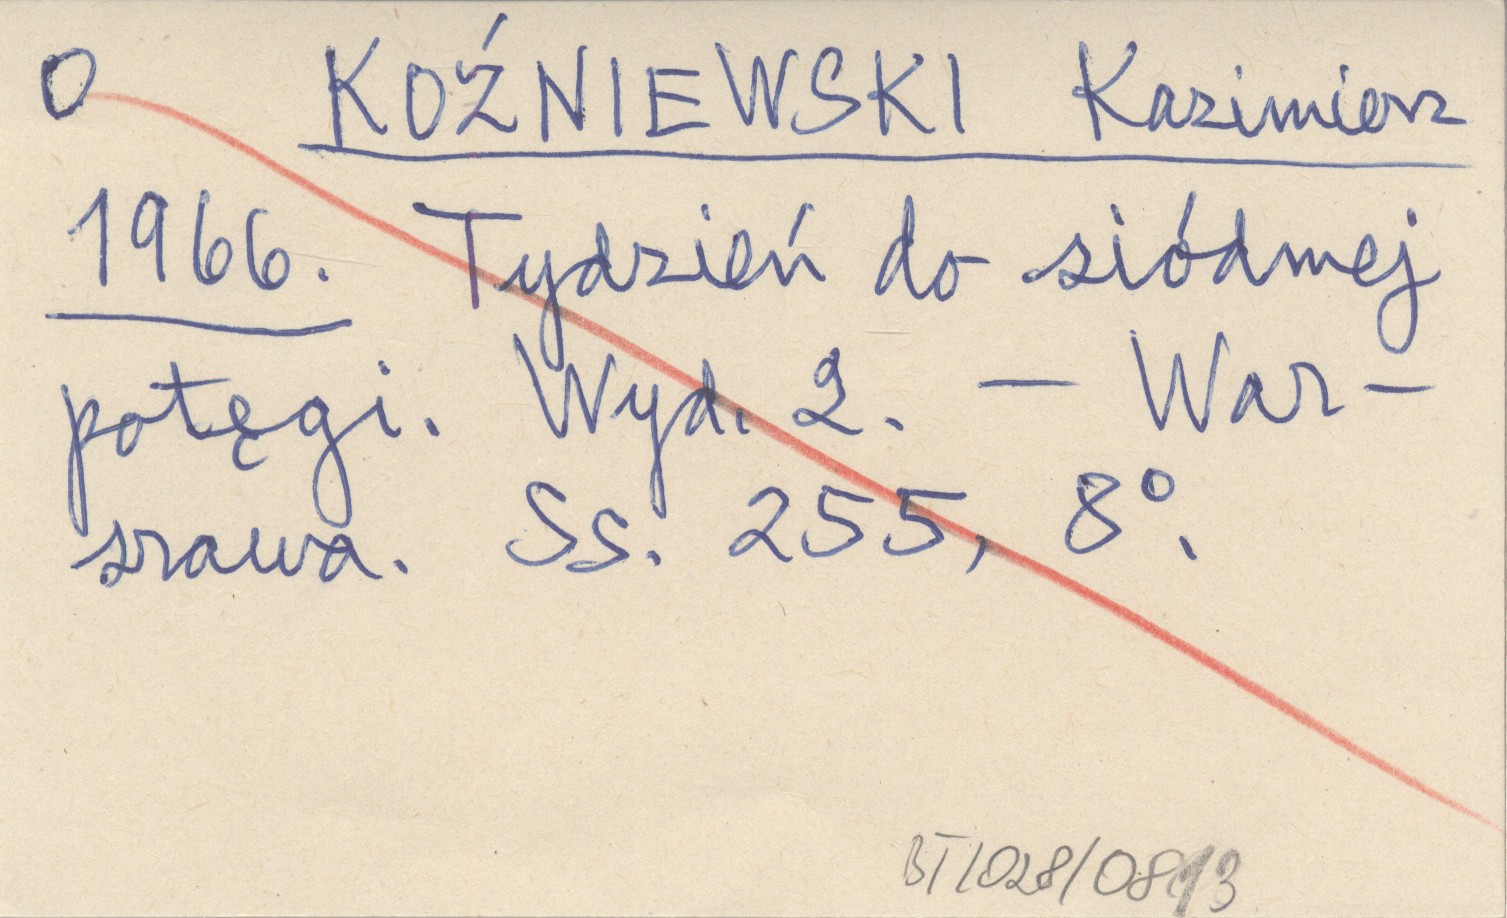 O KOŹNIEWSKI Kazimierz
1966. Tydzień do siódmej
potęgi. Wyd. 2. — War-
szawa. Ss. 255, 8°.
BT/028/0893